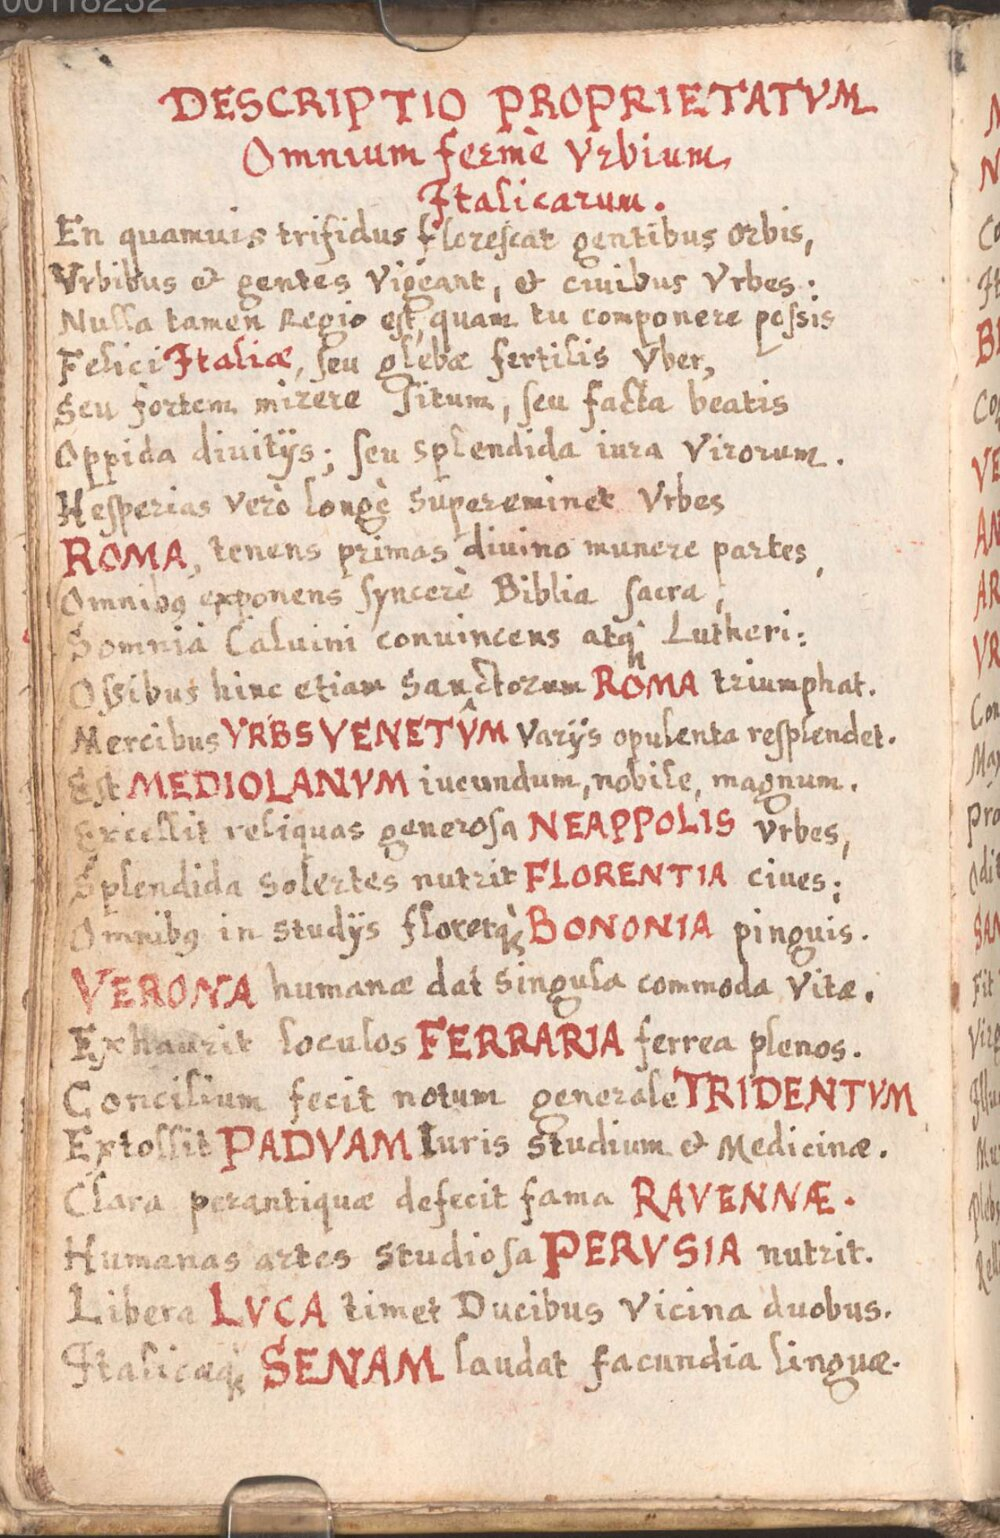 00118232
DESCRIPTIO PROPRIETATVM
Omnium fermè Vrbium
Italicarum.
En quamuis trifidus florescat gentibus orbis,
Vrbibus & gentes vigeant, & ciuibus vrbes:
Nulla tamen Regio est, quam tu componere possis
Felici Italiæ, seu glebæ fertilis vber,
Seu fortem mirere situm, seu facta beatis
Oppida diuitijs; seu splendida iura virorum.
Hesperias verò longè supereminet Vrbes
ROMA, tenens primas diuino munere partes,
Omnibꝰ exponens syncerè Biblia sacra,
Somnia Caluini conuincens atq̀ Lutheri:
Ossibus hinc etiam Sanctorum ROMA triumphat.
Mercibus VRBS VENETV̂M varijs opulenta resplendet.
Est MEDIOLANVM iucundum, nobile, magnum.
Excellit reliquas generosa NEAPPOLIS vrbes,
Splendida solertes nutrit FLORENTIA ciues;
Omnibꝰ in studijs floretq̀ BONONIA pinguis.
VERONA humanæ dat singula commoda vitæ.
Exhaurit loculos FERRARIA ferrea plenos.
Concilium fecit notum generale TRIDENTVM
Extollit PADVAM Iuris studium & Medicinæ.
Clara perantiquæ defecit fama RAVENNÆ.
Humanas artes studiosa PERVSIA nutrit.
Libera LVCA timet Ducibus vicina duobus.
Italicæq̀ SENAM laudat facundia linguæ.